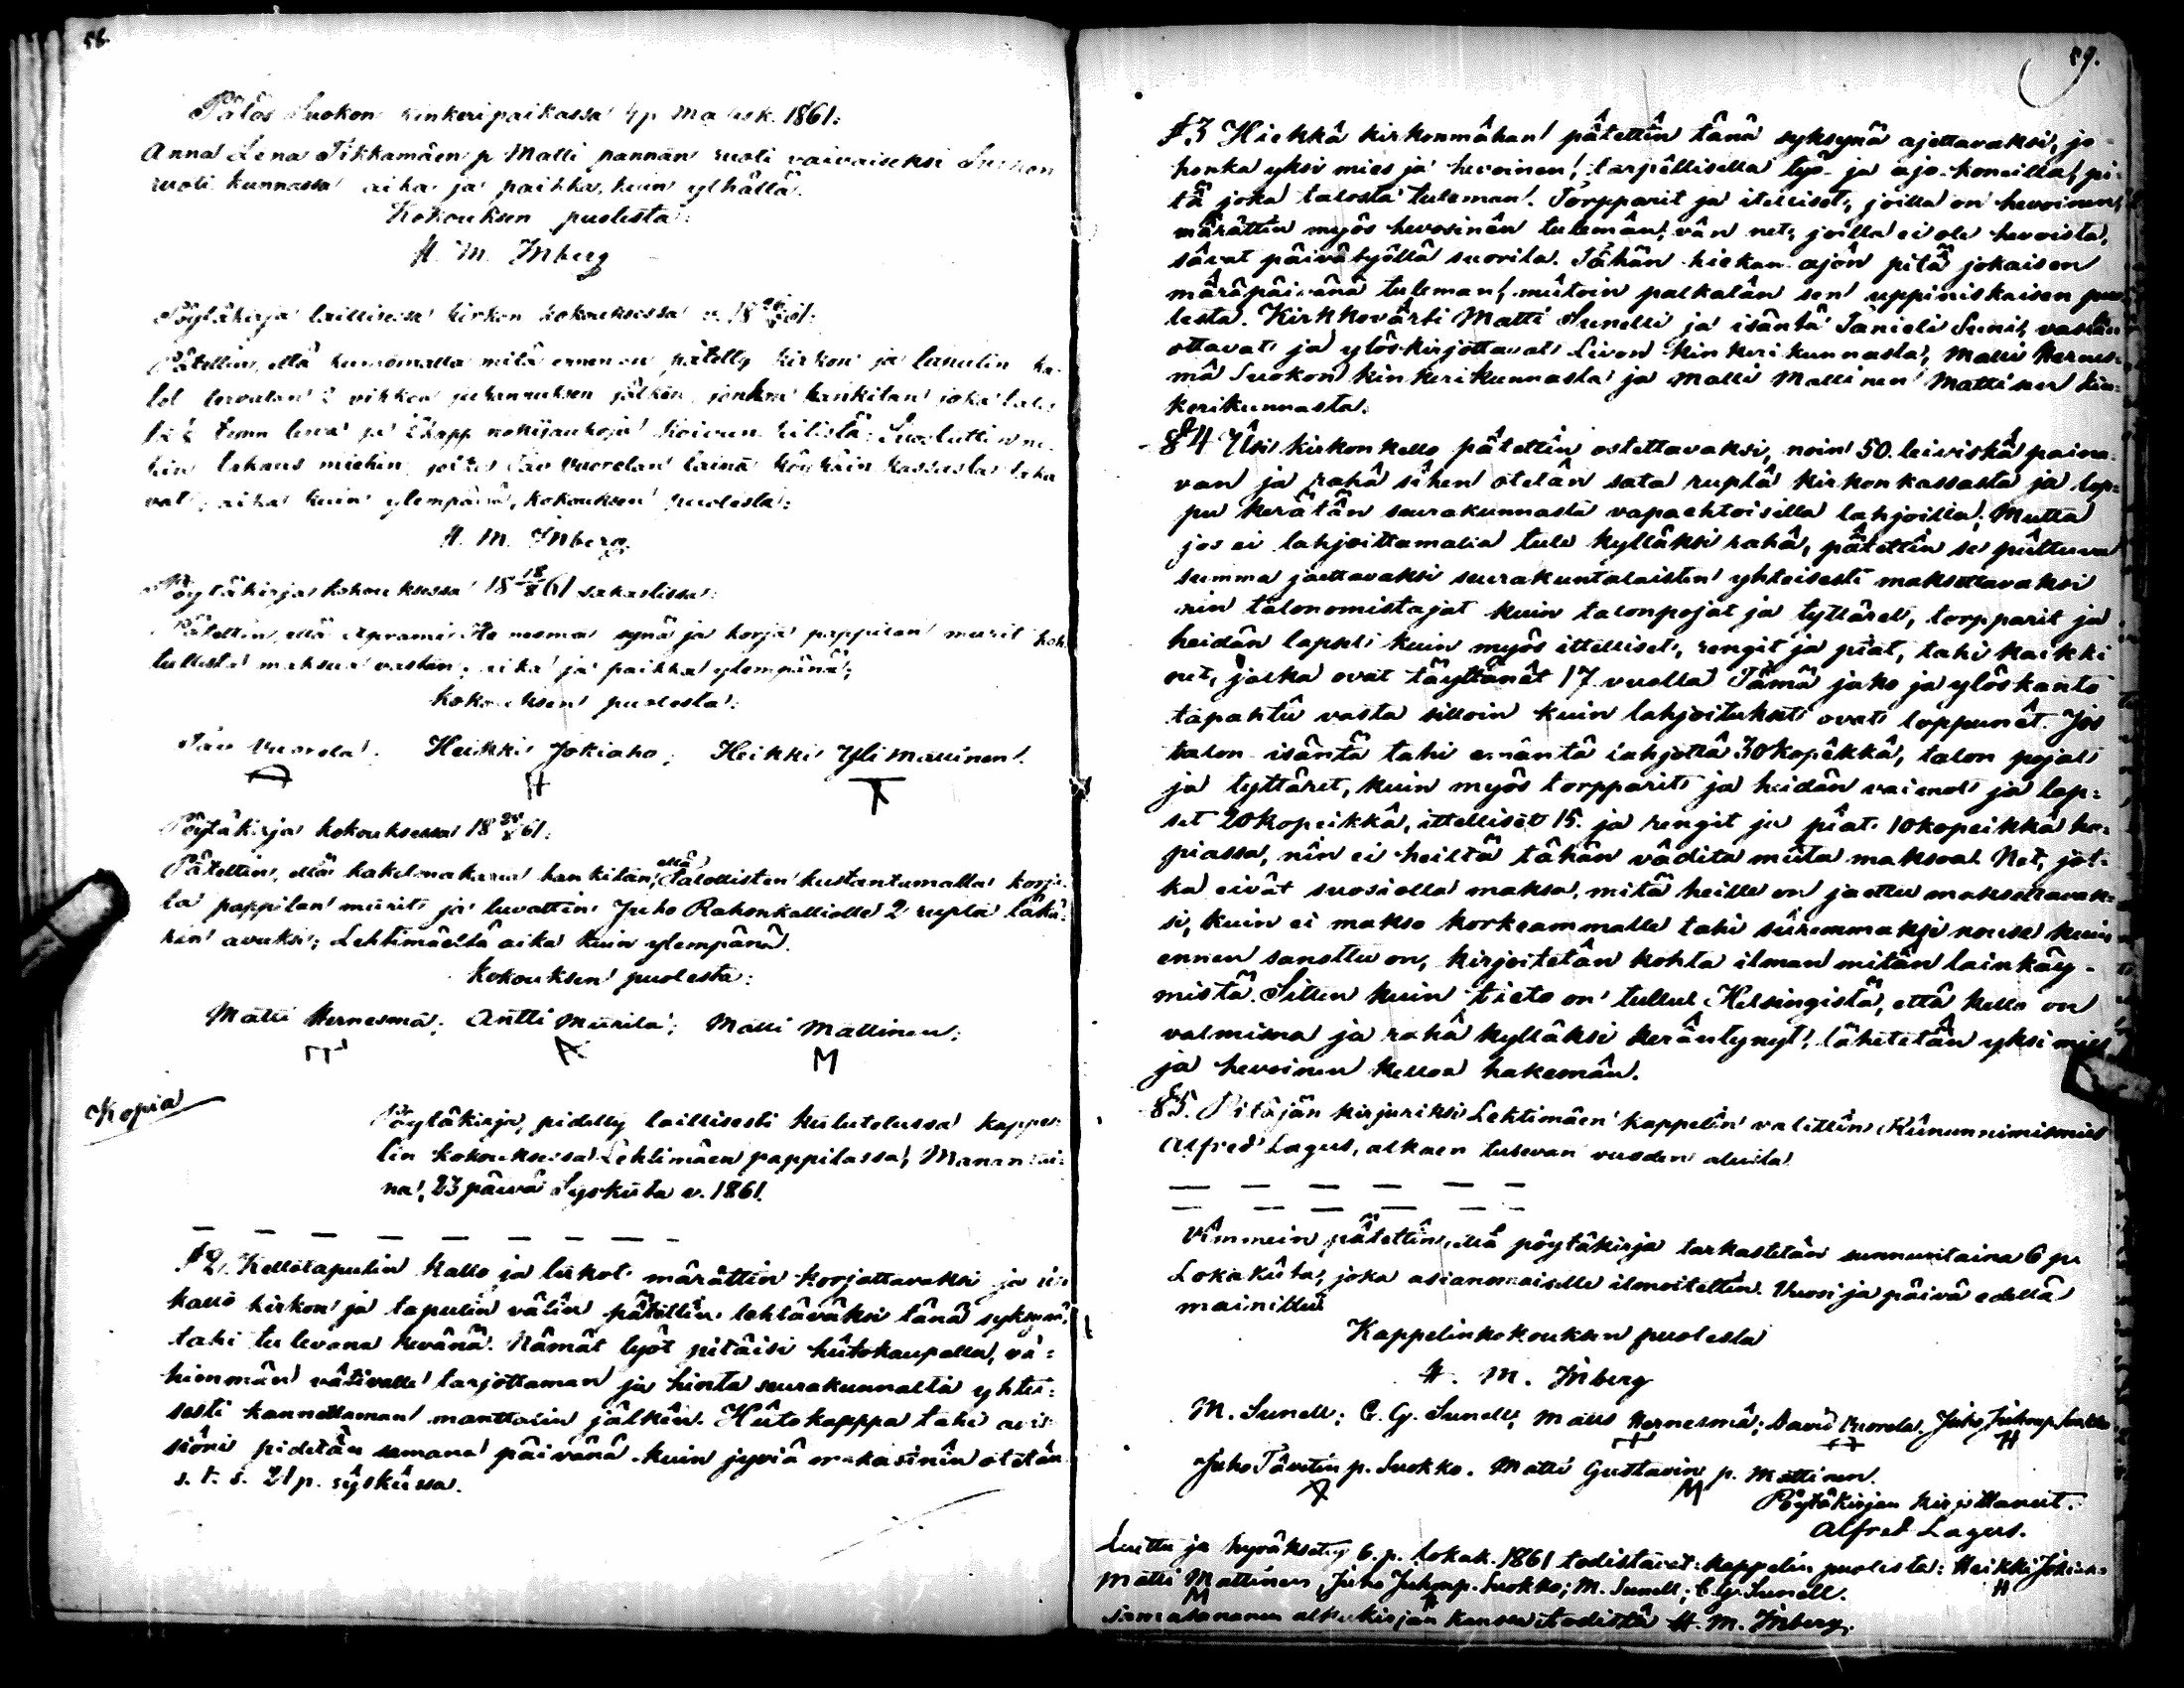 58.
Pätös Suokon kinkeripaikassa 4 p. Maalisk. 1861:
Anna Lena Tikkamäen p. Matti pannan ruoti vaivaiseksi Suokon
ruoti kunnassa aika ja paikka kuin ylhällä.
Kokouksen puolesta:
H. M. Inberg
Pöytäkirja laillisessa kirkon kokouksessa v. 1861:
Pätettin, että huomomatta mitä ennen on pätetty kirkon ja tapulin ka-
tot tervatan 2 vikkoa juhannuksen jälkën, jonka hankitan joka talos
ta ½ tynn terva ja kapp nokijauhoja
hin tahaus miehin Dav Vuorelan lainä köyhäin kassasta
vat; aika kuin ylempänä, kokouksen puolesta:
H. M. Inberg.
Pöytäkirja kokouksessa 18 18/8 61 sakastissa:
Pätettin, että Aprami Hernesmä synä ja korja pappilan murit koh
tullista maksua vastän; aika ja paikka ylempänä;
kokouksen puolesta:
Dav Vuorela. Heikki Jokiaho; Heikki Ylimattinen.
H
Pöytäkirja kokouksessa 18 25/8 61:
Pätettin, että kakelonakaria hankitän, että talollisten kustantamalla korja-
ta pappilan mürit ja luvattin Juho Rahonkalliolle 2 rupla läkä-
rin avuksi; Lehtimäeltä aika kuin ylempänä.
kokouksen puolesta:
Matti Hernesmä; Antti Mürila; Matti Mattinen;
M
Kopia
Pöytäkirja, pidetty laillisesti kulutetussa kappe-
lin kokouksessa Lehtimäen pappilassa, Manantai-
na, 23 päivä Syyskûta v. 1861.
§ 2. Kellotapulin katto ja lukot märättin korjattavaksi ja
katto kirkon ja tapulin välin pätettin tehtäväksi tänä syksynä,
tahi tulevana kevänä. Nämät työt pitäisi hûtokaupalla, vä-
himmän vätivalle tarjottaman ja hinta seurakunnalta yhtei-
sesti kannettaman manttalin jälkën. Hûtokappa tahi auk-
sioni pidetän samana päivänä kuin jyviä makasinin otetän
s. t. s. 21 p. syyskûssa.
59.
§ 3 Hiekkâ kirkonmâhan pâtettîn tänä syksynä ajettavaksi, jo-
honka yksi mies ja hevoinen, tarpëllisella työ- ja ajo-koneilla, pi-
tä joka talosta tuleman. Torpparit ja itelliset, joilla on hevoinen,
märättin myös hevosinën tulemän, vän net, joilla ei ole hevoista,
sävat päivätyöllä suorita. Tähän hiekan ajon pitä jokaisen
märäpäivänä tuleman, mûtoin palkatän sen uppiniskaisen puo-
lesta. Kirkkovärti Matti Sunelli ja isäntä Tanieli Sunit, vastän
ottavat ja ylöskirjottavat Livon kinkerikunnasta, Matti Hernes-
mä Suokon kinkerikunnasta ja Matti Mattinen Mattisen kin-
kerikunnasta.
§ 4 Ûsi kirkonkello pätettin ostettavaksi, noin 50. leiviskä paina-
van ja rahâ sihen otetän sata ruplâ kirkonkassasta ja lop-
pu kerätän seurakunnasta vapaehtoisilla lahjoilla; Mutta
jos ei lahjoittamalla tule kylläksi rahâ, pätettin se pûttuva
summa jaettavaksi seurakuntalaisten yhteisesti maksettavaksi
nin talonomistajat kuin talonpojat ja tyttäret, torpparit ja
heidän lapset kuin myös ittelliset, rengit ja pîat, tahi kaikki
net, jotka ovat täyttänët 17 vuotta. Tämä jako ja ylöskanto
tapahtû vasta silloin kuin lahjoitukset ovat loppunët. Jos
talon isäntä tahi emäntä lahjottâ 30 kopëkkâ, talon pojat
ja tyttäret, kuin myös torpparit ja heidän vaimot ja lap-
set 20 kopeikkâ, ittelliset 15. ja rengit ja pîat 10 kopeikkâ ho-
piassa, nîn ei heiltä tähän vâdita mûta maksoa. Net, jot-
ka eivät suosiolla maksa, mitä heille on jaettu maksettavak-
si, kuin ei makso korkeammalle tahi sûremmaksi nouse kuin
ennen sanottu on, kirjoitetän kohta ilman mitän lainkäy-
mistä. Sitten kuin tieto on tullut Helsingistä, että kello on
valmissa ja rahâ kylläksi keräntynyt, lähetetän yksi mies
ja hevoinen kelloa hakemân.
§ 5. Pitäjän kirjuriksi Lehtimäen kappelin valittin Rûnunnimismies
Alfred Lagus, alkaen tulevan vuoden alusta.
Vîmmein pätettin, että pöytäkirja tarkastetän sunnuntaina 6 p:
Lokakûta, joka asianomaiselle ilmoitettin. Vuosi ja päivä edellä
mainittu.
Kappelinkokouksen puolesta
H. M. Inberg
M. Sunell; C. G. Sunell; Matts Hernesmä; David Vuorela. Juho Juhonp. Suokko.
H
Juho Tävetin p. Suokko. Matti Gustavin p. Mattinen.
M
Pöytäkirjan kirjottanut.
Alfred Lagus.
Luettu ja hyväksetty 6. p. Lokak. 1861 todistavat: kappelin puolesta: Heikki Jokiaho
H
Matti Mattinen, Juho Juhonp. Suokko; M. Sunell; C. G. Sunell.
M H
Samasananen alkukirjan kanssa todistä H. M. Inberg.